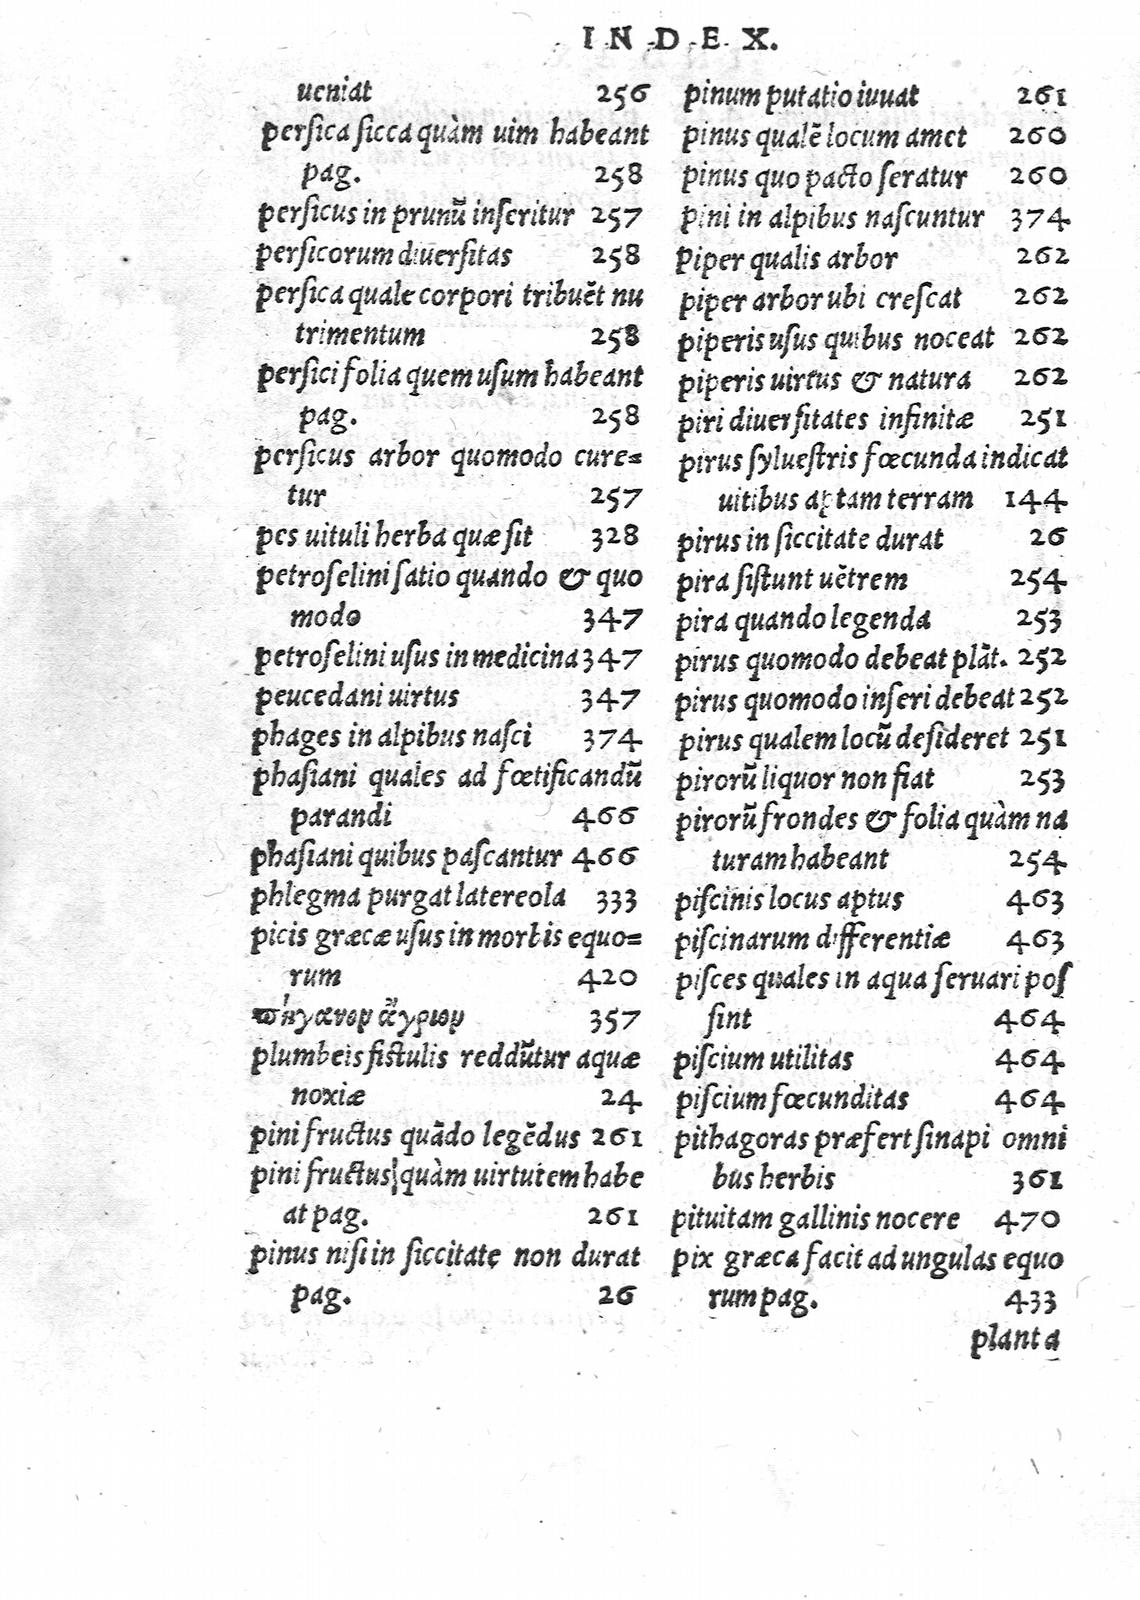 INDEX.
ueniat 256
persica sicca quàm uim habeant
pag. 258
persicus in prunũ inseritur 257
persicorum diuersitas 258
persica quale corpori tribuẽt nu
trimentum 258
persici folia quem usum habeant
pag. 258
persicus arbor quomodo cure=
tur 257
pes uituli herba quæ sit 328
petroselini satio quando & quo
modo 347
petroselini usus in medicina 347
peucedani uirtus 347
phages in alpibus nasci 374
phasiani quales ad fœtificandũ
parandi 466
phasiani quibus pascantur 466
phlegma purgat latereola 333
picis græcæ usus in morbis equo=
rum 420
πήγανον ἄγριον 357
plumbeis fistulis reddũtur aquæ
noxiæ 24
pini fructus quãdo legẽdus 261
pini fructus quàm uirtutem habe
at pag. 261
pinus nisi in siccitate non durat
pag. 26
pinum putatio iuuat 261
pinus qualẽ locum amet 260
pinus quo pacto seratur 260
pini in alpibus nascuntur 374
piper qualis arbor 262
piper arbor ubi crescat 262
piperis usus quibus noceat 262
piperis uirtus & natura 262
piri diuersitates infinitæ 251
pirus syluestris fœcunda indicat
uitibus aptam terram 144
pirus in siccitate durat 26
pira sistunt uẽtrem 254
pira quando legenda 253
pirus quomodo debeat plãt. 252
pirus quomodo inseri debeat 252
pirus qualem locũ desideret 251
pirorũ liquor non fiat 253
pirorũ frondes & folia quàm na
turam habeant 254
piscinis locus aptus 463
piscinarum differentiæ 463
pisces quales in aqua seruari pos
sint 464
piscium utilitas 464
piscium fœcunditas 464
pithagoras præfert sinapi omni
bus herbis 361
pituitam gallinis nocere 470
pix græca facit ad ungulas equo
rum pag. 433
planta